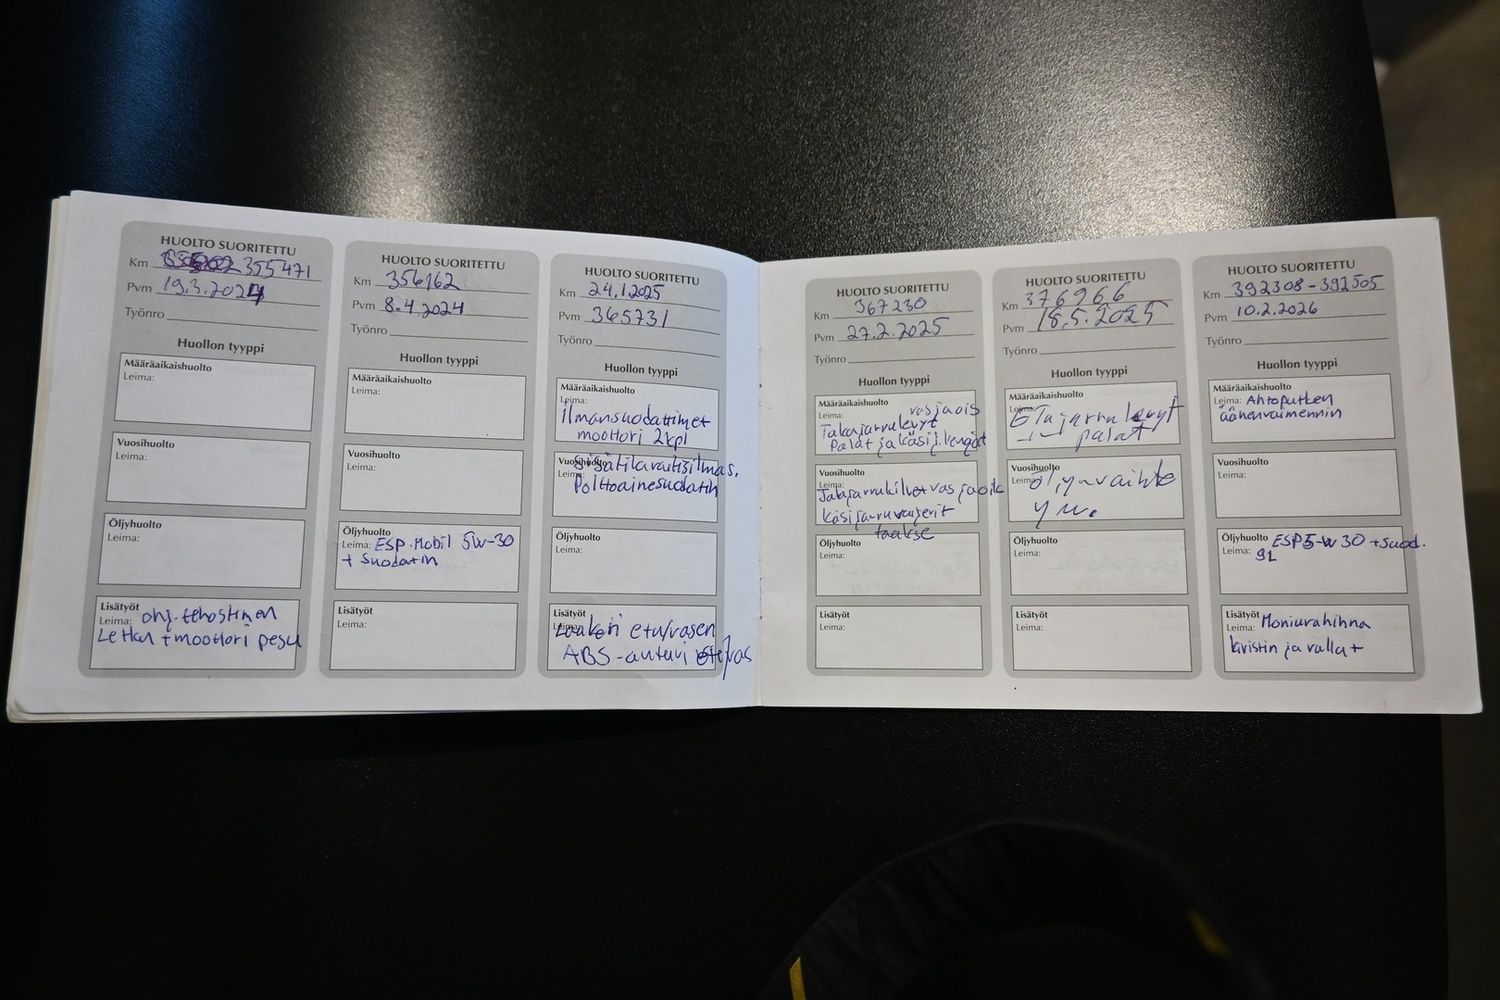 HUOLTO SUORITETTU
Km 355471
Pvm 19.3.2024
Työnro
Huollon tyyppi
Määräaikaishuolto
Leima:
Vuosihuolto
Leima:
Öljyhuolto
Leima:
Lisätyöt
Leima: ohj. tehostimen
Letku + moottori pesu
HUOLTO SUORITETTU
Km 356162
Pvm 8.4.2024
Työnro
Huollon tyyppi
Määräaikaishuolto
Leima:
Vuosihuolto
Leima:
Öljyhuolto
Leima: ESP Mobil 5W-30
+ Suodatin
Lisätyöt
Leima:
HUOLTO SUORITETTU
Km 24.1.2025
Pvm 365731
Työnro
Huollon tyyppi
Määräaikaishuolto
Leima:
Ilmansuodattimet
moottori 2kpl
Vuosihuolto
Leima:
Polttoainesuodatin
Öljyhuolto
Leima:
Lisätyöt
Leima:
Laakeri etu/vasen
ABS-anturi /vas
HUOLTO SUORITETTU
Km 367230
Pvm 27.2.2025
Työnro
Huollon tyyppi
Määräaikaishuolto
Leima: vas ja ois
Takajarrulevyt
Palat ja käsij. kengät
Vuosihuolto
Leima:
vas ja oik
Käsijarruvaijerit
taakse
Öljyhuolto
Leima:
Lisätyöt
Leima:
HUOLTO SUORITETTU
Km 376966
Pvm 18.5.2025
Työnro
Huollon tyyppi
Määräaikaishuolto
Leima:
ETujarrulevyt
-"- palat
Vuosihuolto
Leima:
Öljynvaihto
ym.
Öljyhuolto
Leima:
Lisätyöt
Leima:
HUOLTO SUORITETTU
Km 392308-392505
Pvm 10.2.2026
Työnro
Huollon tyyppi
Määräaikaishuolto
Leima: Ahtoputken
äänenvaimennin
Vuosihuolto
Leima:
Öljyhuolto
Leima: ESP 5-W30 + Suod.
9L
Lisätyöt
Leima: Moniurahihna
kiristin ja rullat